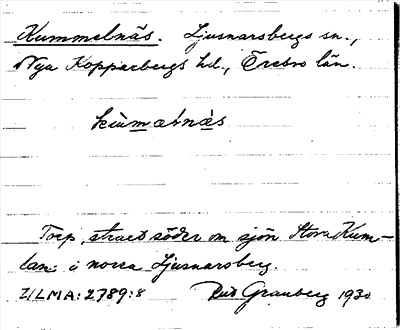 Kummelnäs. Ljusnarsbergs sn.,
Nya Kopparbergs hd., Örebro län.
Torp, strax söder om sjön Stora Kum-
lan i norra Ljusnarsberg.
ULMA: 2789:8 Rud Granberg 1930